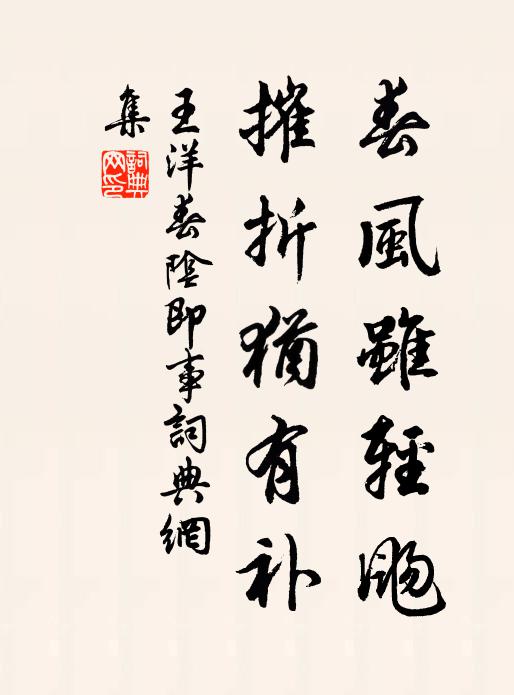 春風雖輕飏
摧折猶有补
王洋春陰即事詞典網
集
詞典
网印